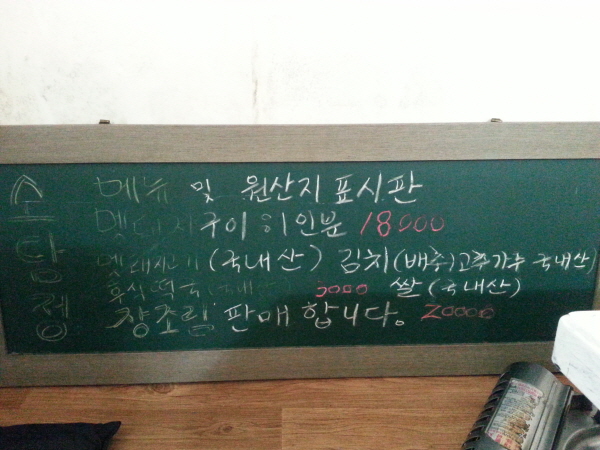 소담정
메뉴 및 원산지 표시판
멧돼지구이 1인분 18000
멧돼지고기 (국내산) 김치(배추)고추가루 국내산)
후식 떡국 (국내산) 5000 쌀 (국내산)
장조림 판매합니다. 20000